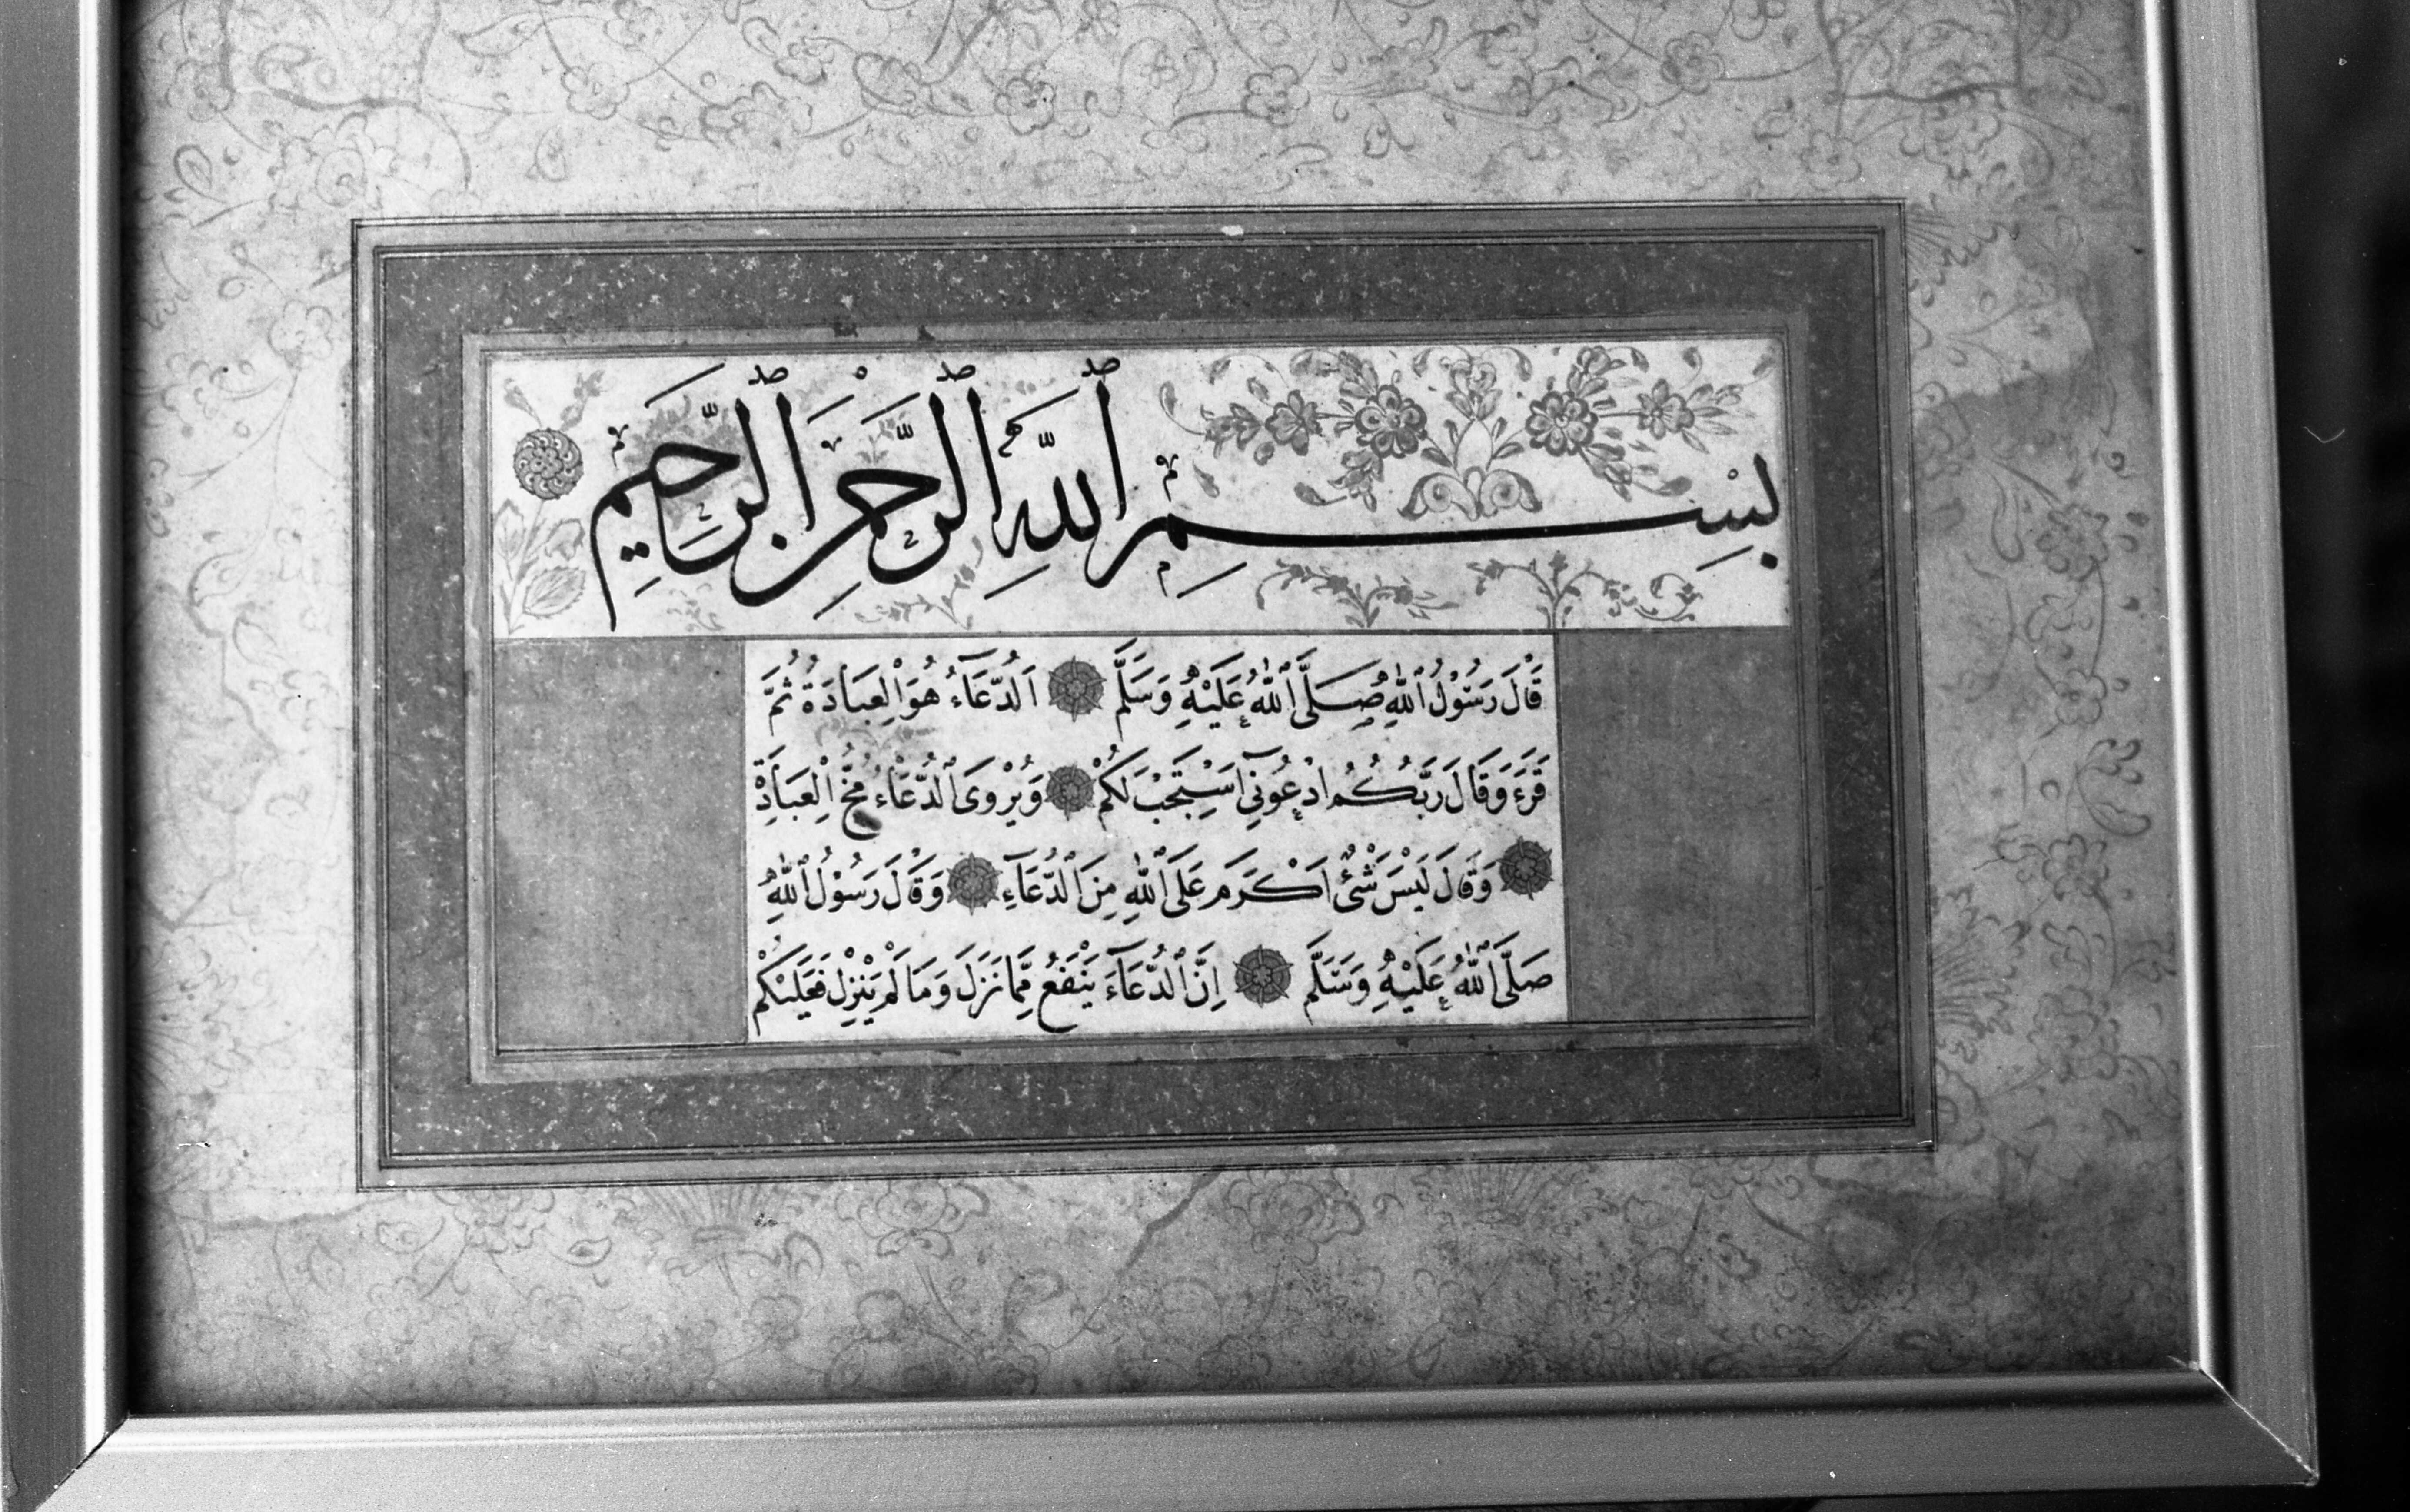 بِسْمِ ٱللَّهِ ٱلرَّحْمَنِ ٱلرَّحِيمِ
قَالَ رَسُوْلُ ٱللّٰهِ صَلَّى ٱللّٰهُ عَلَيْهِ وَسَلَّمَ اَلدُّعَآءُ هُوَ الْعِبَادَةُ ثُمَّ
قَرَءَ وَقَالَ رَبُّكُمُ ادْعُونِٓي اَسْتَجِبْ لَكُمْ وَيُرْوَى ٱلدُّعَآءُ مُخُّ الْعِبَادَةِ
وَقَالَ لَيْسَ شَيْئٌ اَكْرَمَ عَلَى ٱللّٰهِ مِنَ ٱلدُّعَآءِ وَقَالَ رَسُوْلُ ٱللّٰهِ
صَلَّى ٱللّٰهُ عَلَيْهِ وَسَلَّمَ اِنَّ ٱلدُّعَآءَ يَنْفَعُ مِمَّا نَزَلَ وَمَا لَمْ يَنْزِلْ فَعَلَيْكُمْ